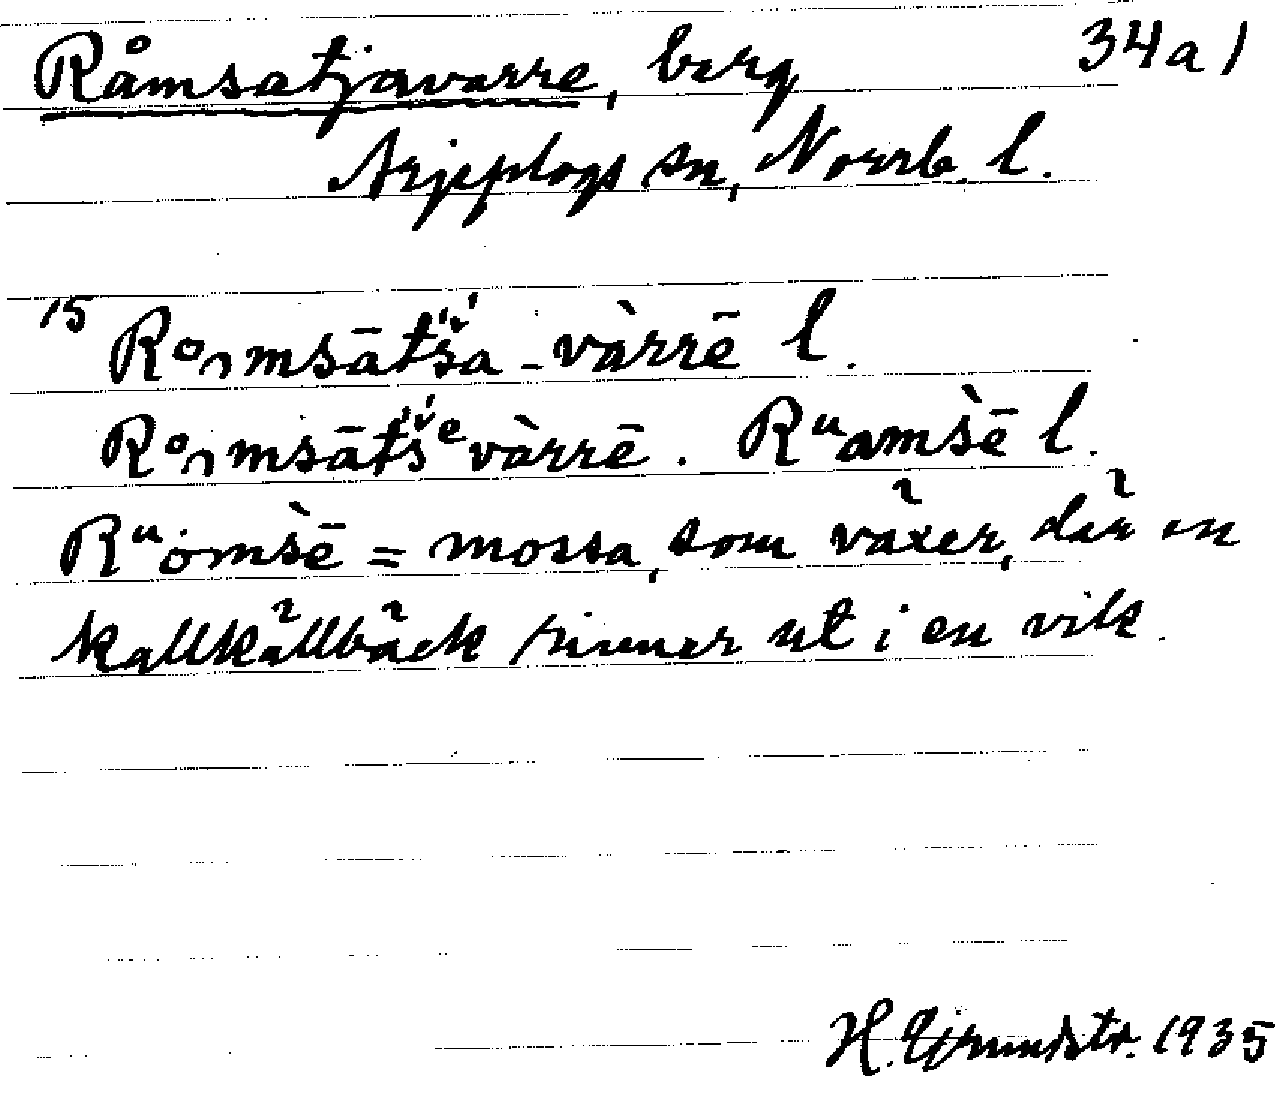 Råmsatjavarre, berg 34a1
Arjeplogs sn, Norrb. l.
15 Rᵒ∩msāt̕š̕a - vàrrē l.
Rᵒ∩msāt̕š̕ᵉvàrrē. Rᵘamsè̄ l.
Rᵘȯmsè̄ = mossa, som växer, där en
kallkällbäck rinner ut i en vik.
H. Grundstr. 1935